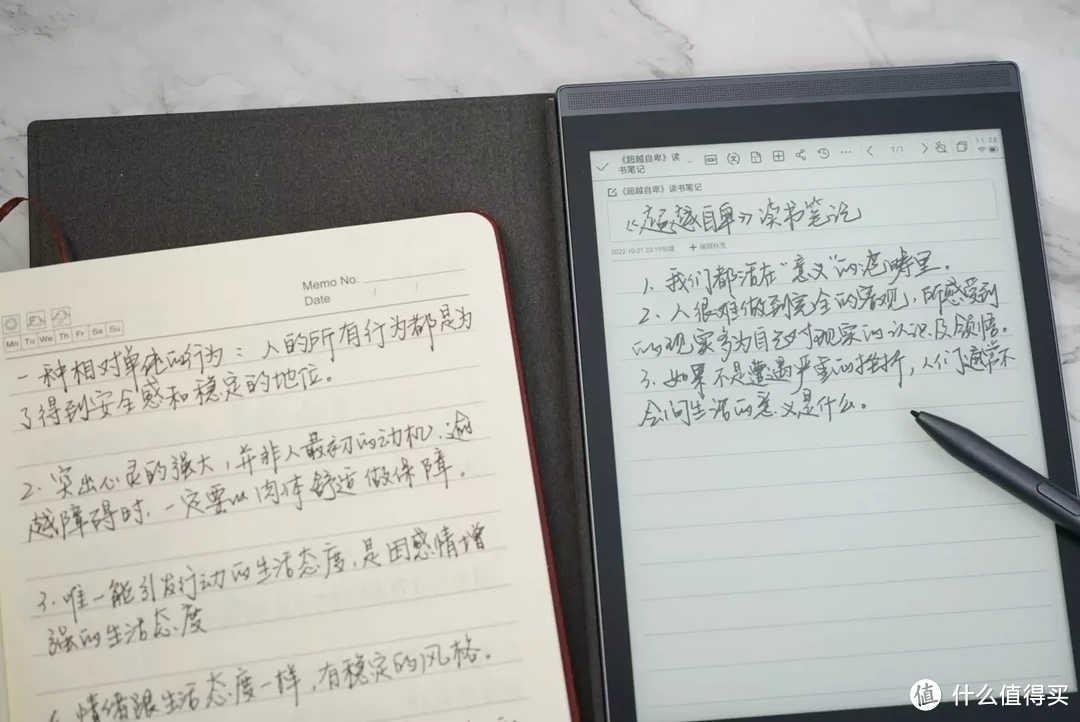 Memo No.
Date / /
Mo Tu We Th Fr Sa Su
一种相对单纯的行为：人的所有行为都是为
了得到安全感和稳定的地位。
2. 突出心灵的强大，并非人最初的动机，逾
越障碍时，一定要以肉体舒适做保障。
3. 唯一能引发行动的生活态度，是因感情增
强的生活态度
情绪跟生活态度一样，有稳定的风格。
《超越自卑》读
书笔记
1/1
11:28
《超越自卑》读书笔记
《超越自卑》读书笔记
2022-10-21 23:10创建 + 编辑标签
1. 我们都活在“意义”的范畴里。
2. 人很难做到完全的客观，所感受到
的现实多为自己对现实的认识及领悟。
3. 如果不是遭遇严重的挫折，人们通常不
会问生活的意义是什么。
值 什么值得买